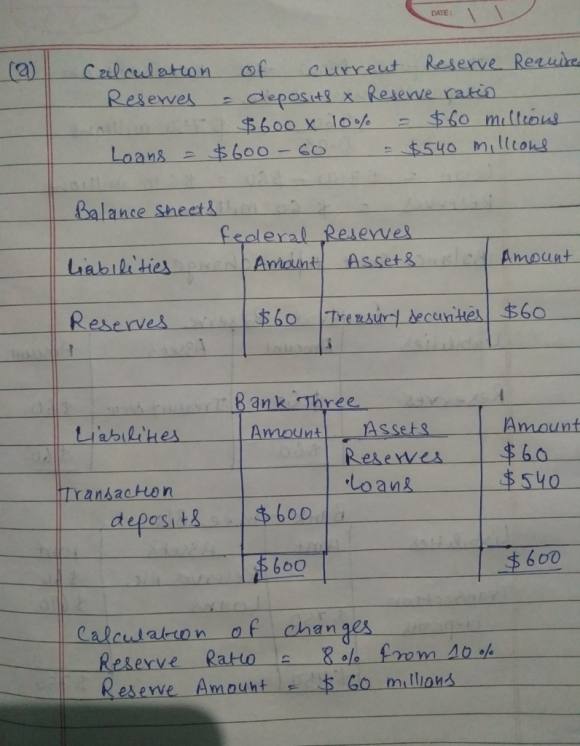 DATE:
(a) Calculation of current Reserve Require
Reserves = deposits x Reserve ratio
$600 x 10% = $60 millions
Loans = $600 - 60 = $540 millions
Balance sheets
Federal Reserves
Liabilities Amount Assets Amount
Reserves $60 Treasury securities $60
Bank Three
Liabilities Amount Assets Amount
Reserves $60
Transaction Loans $540
deposits $600
$600 $600
Calculation of changes
Reserve Ratio = 8% from 10%
Reserve Amount = $60 millions